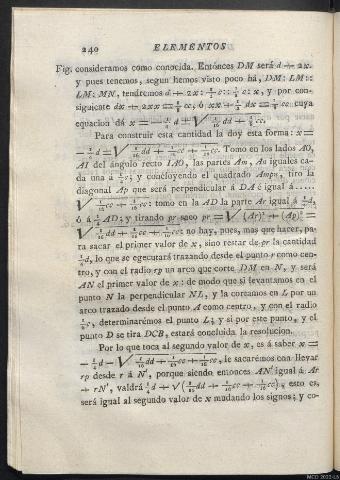 240 ELEMENTOS
Fig. consideramos como conocida. Entónces DM será d + 2x.
y pues tenemos, segun hemos visto poco há, DM: LM::
LM: MN, tendrémos d + 2x: ½c:: ½c: x, y por con-
siguiente dx + 2xx = ¼cc, ó xx + ½dx = ⅛cc cuya
equacion dá x = - ¼d + √ 1/16 dd + ⅛cc.
Para construir esta cantidad la doy esta forma: x =
- ¼d = √ 1/16 dd + 1/16 cc + 1/16 cc. Tomo en los lados AO,
AI del ángulo recto IAO, las partes Am, An iguales ca-
da una á ¼c; y concluyendo el quadrado Ampn, tiro la
diagonal Ap que será perpendicular á DA é igual á.....
√ 1/16 cc + 1/16 cc: tomo en la AD la parte Ar igual á ¼d,
ó á ¼AD; y tirando pr saco pr = √ (Ar)² + (Ap)² =
√ 1/16 dd + 1/16 cc + 1/16 cc: no hay, pues, mas que hacer, pa-
ra sacar el primer valor de x, sino restar de pr la cantidad
¼d, lo que se egecutará trazando desde el punto r como cen-
tro, y con el radio rp un arco que corte DM en N, y será
AN el primer valor de x: de modo que si levantamos en el
punto N la perpendicular NL, y la cortamos en L por un
arco trazado desde el punto A como centro, y con el radio
½c, determinarémos el punto L; y si por este punto, y el
punto D se tira DCB, estará concluida la resolucion.
Por lo que toca al segundo valor de x, es á saber x =
- ¼d - √ 1/16 dd + 1/16 cc + 1/16 cc, le sacarémos con llevar
rp desde r á N', porque siendo entonces AN' igual á Ar
+ rN', valdrá ¼d + √ (1/16 dd + 1/16 cc + 1/16 cc), esto es,
será igual al segundo valor de x mudando los signos; y co-
MCD 2022-L5